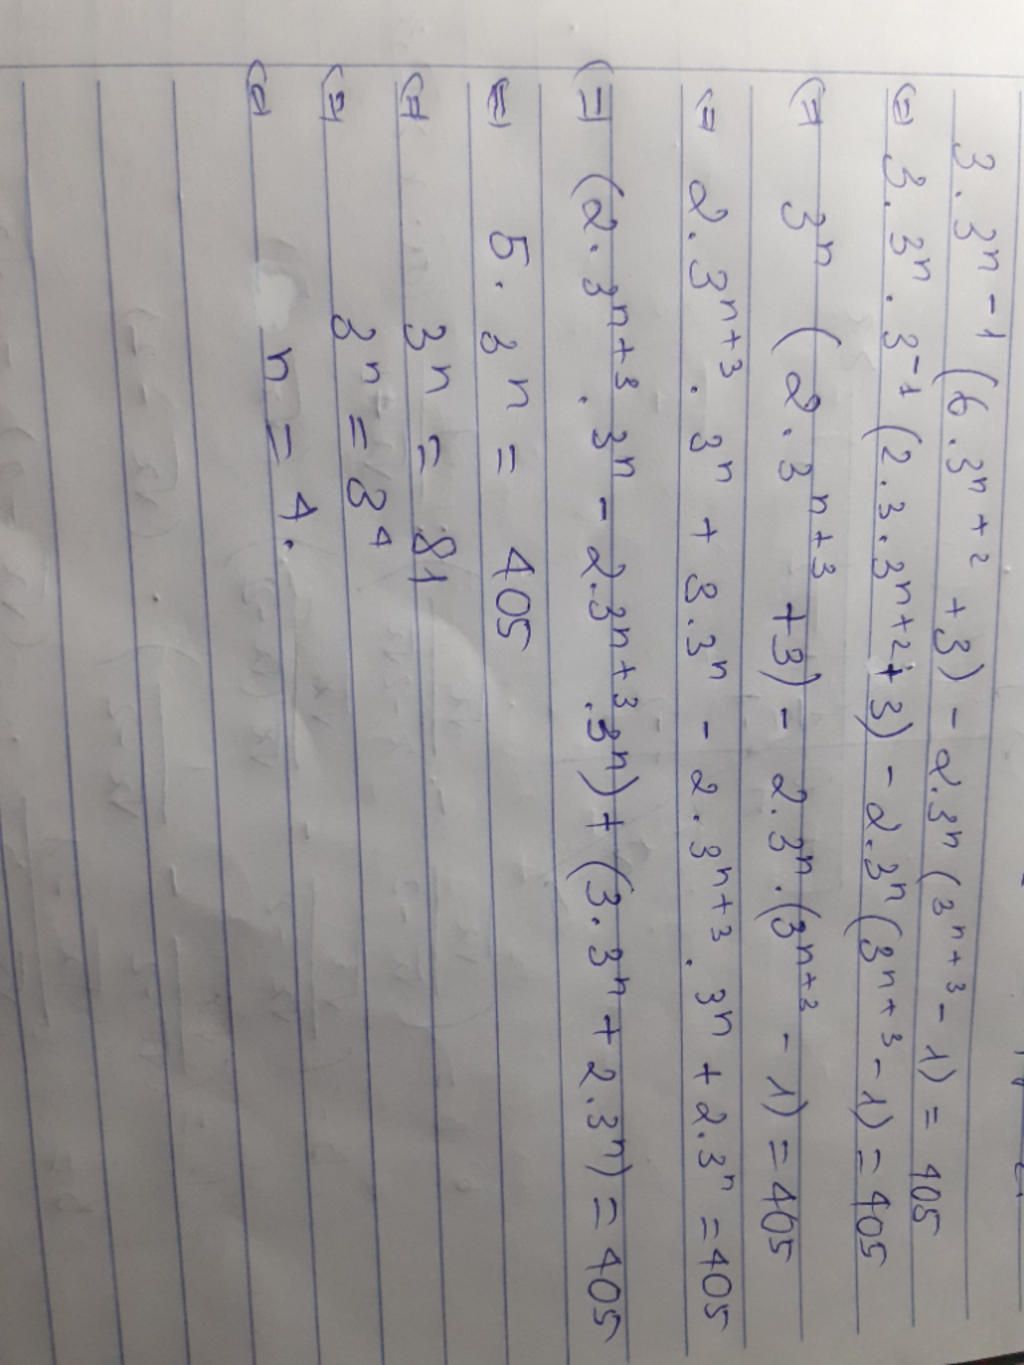 3 . 3ⁿ⁻¹ (6 . 3ⁿ⁺² + 3) - 2.3ⁿ (3ⁿ⁺³ - 1) = 405
(=) 3 . 3ⁿ . 3⁻¹ (2 . 3 . 3ⁿ⁺² + 3) - 2.3ⁿ (3ⁿ⁺³ - 1) = 405
(=) 3ⁿ (2 . 3ⁿ⁺³ + 3) - 2.3ⁿ . (3ⁿ⁺³ - 1) = 405
(=) 2 . 3ⁿ⁺³ . 3ⁿ + 3.3ⁿ - 2 . 3ⁿ⁺³ . 3ⁿ + 2.3ⁿ = 405
(=) (2 . 3ⁿ⁺³ . 3ⁿ - 2.3ⁿ⁺³ . 3ⁿ) + (3.3ⁿ + 2.3ⁿ) = 405
(=) 5 . 3ⁿ = 405
(=) 3ⁿ = 81
(=) 3ⁿ = 3⁴
(=) n = 4.